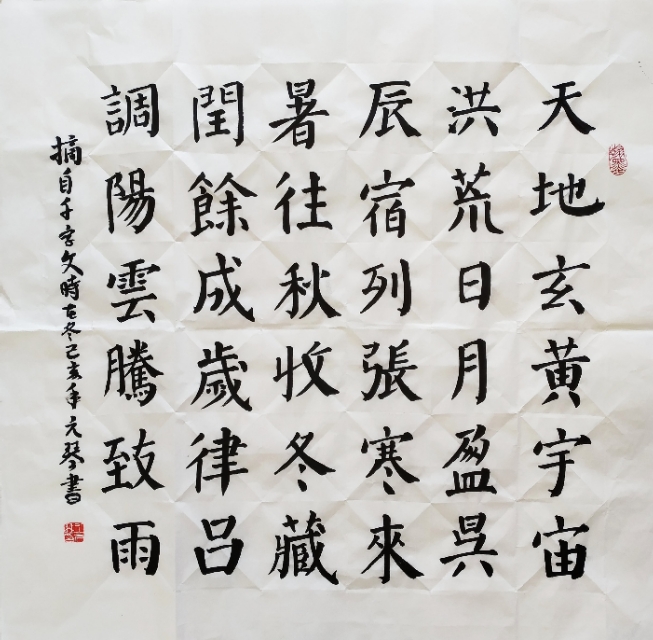 天地玄黄宇宙
洪荒日月盈昃
辰宿列張寒來
暑往秋收冬藏
閏餘成歲律吕
調陽雲騰致雨
摘自千字文時在冬己亥年元琴書